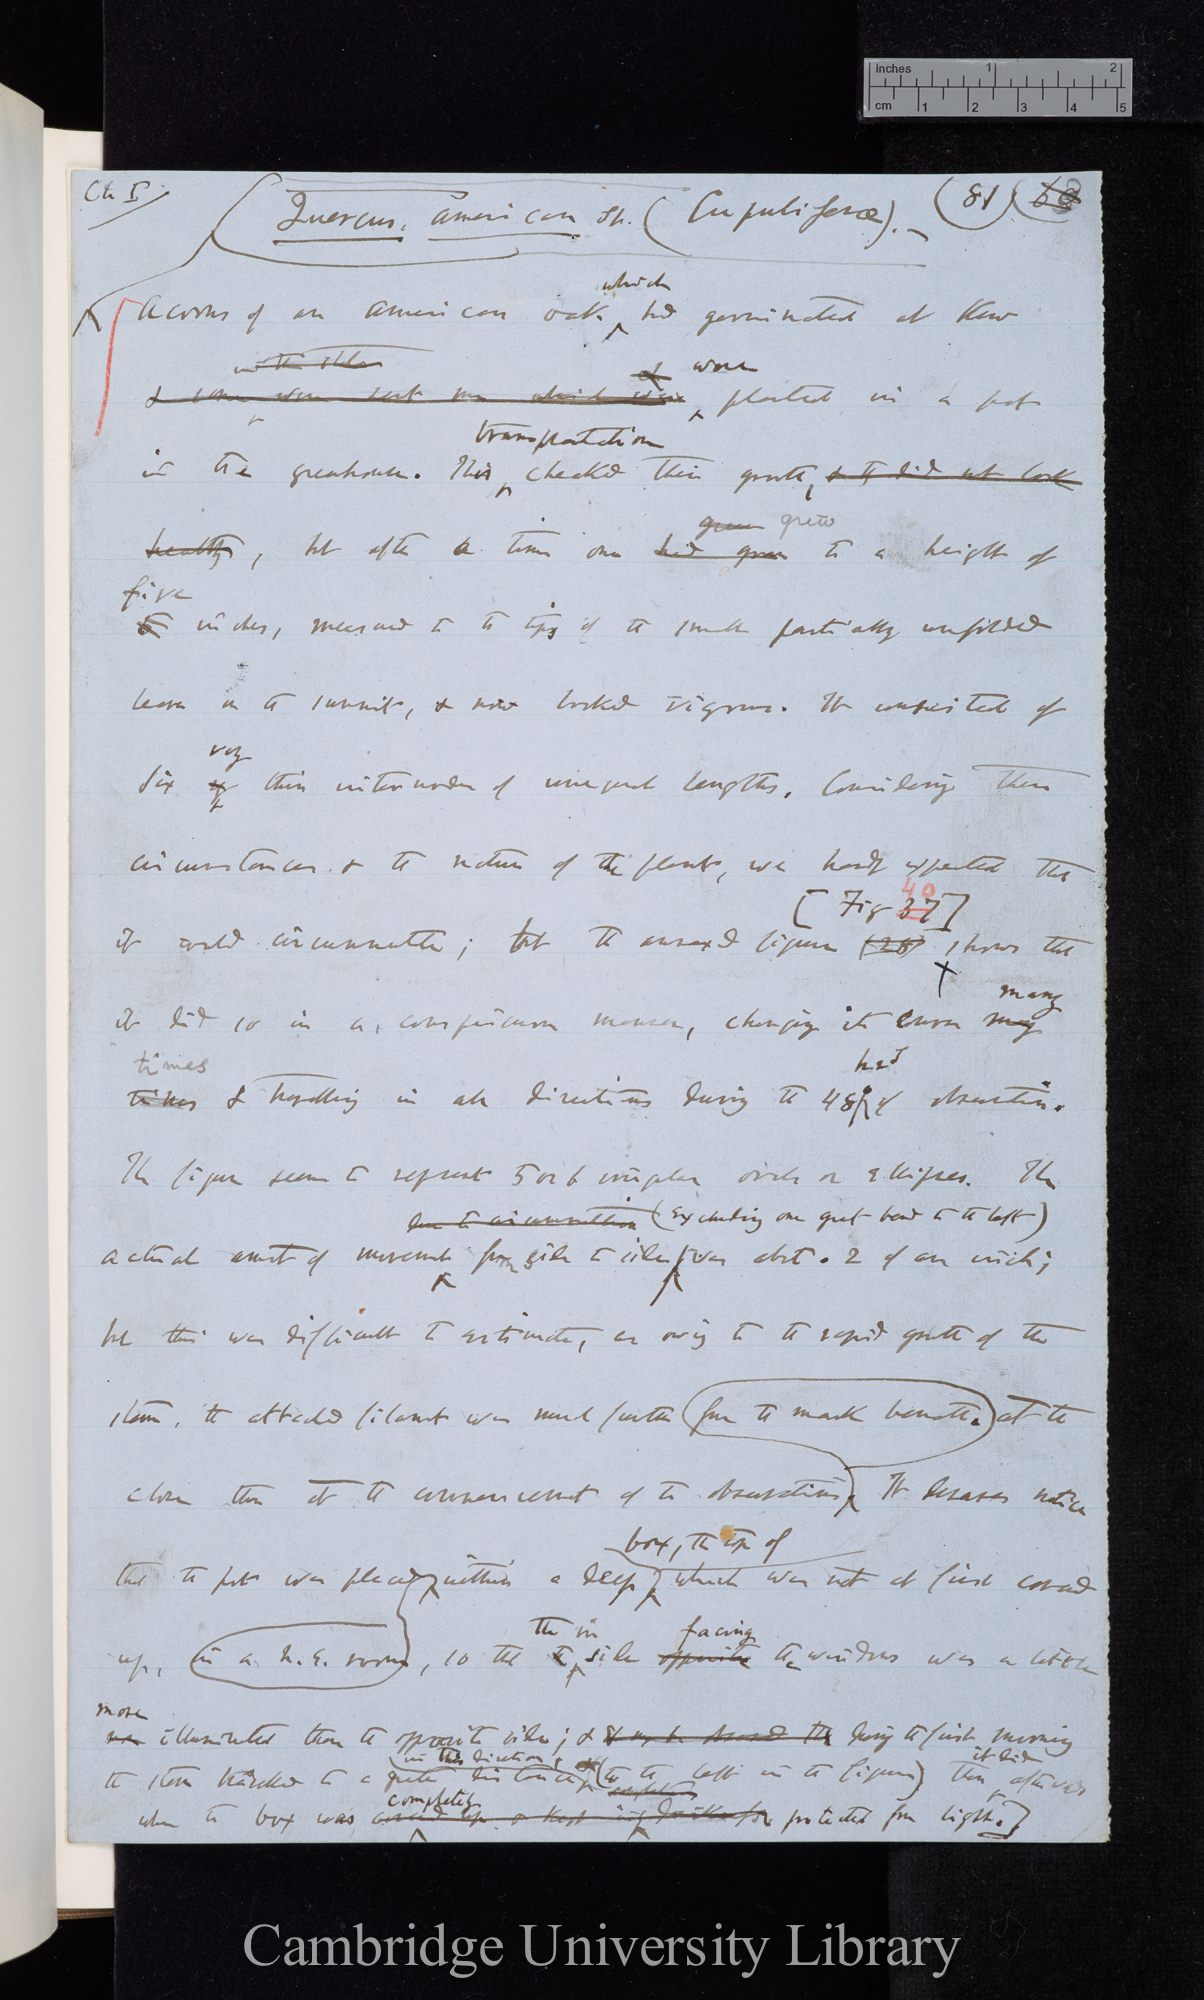 Inches 1 2
cm 1 2 3 4 5
Ch I
Quercus, American sp. (Cupuliferae). — (81) 60
which
Acorns of an American oak had germinated at Kew
in the
were
& some were sent me which were planted in a pot
transplantation
in the greenhouse. This checked their growth, & they did not look
grew grew
healthy, but after a time one had grown to a height of
five
inches, measured to the tips of the small partially unfolded
leaves on the summit, & now looked vigorous. It consisted of
very
six thin internodes of unequal lengths. Considering these
circumstances & the nature of the plant, we hardly expected that
40
[Fig 37]
it would circumnutate; but the annexed figure (28) shows that
many
it did so in a conspicuous manner, changing its course many
times
had
times & travelling in all directions during the 48 h of observation.
The figure seems to represent 5 or 6 irregular ovals or ellipses. The
due to circumnutation (excluding one great bend to the left)
actual amount of movement from side to side was about .2 of an inch;
but this was difficult to estimate, as owing to the rapid growth of the
stem, the attached filament was much further from the mark beneath at the
close than at the commencement of the observations. It deserves notice
box, the top of
that the pot was placed within a deep which was not at first covered
the in
facing
up, in a N.E. room, so that the side opposite the windows was a little
more
illuminated than the opposite side; & during the first morning
in this direction,
it did
the stem travelled to a greater distance (to the left in the figure) than afterwards
completely
when the box was covered up & kept protected from light.]
Cambridge University Library